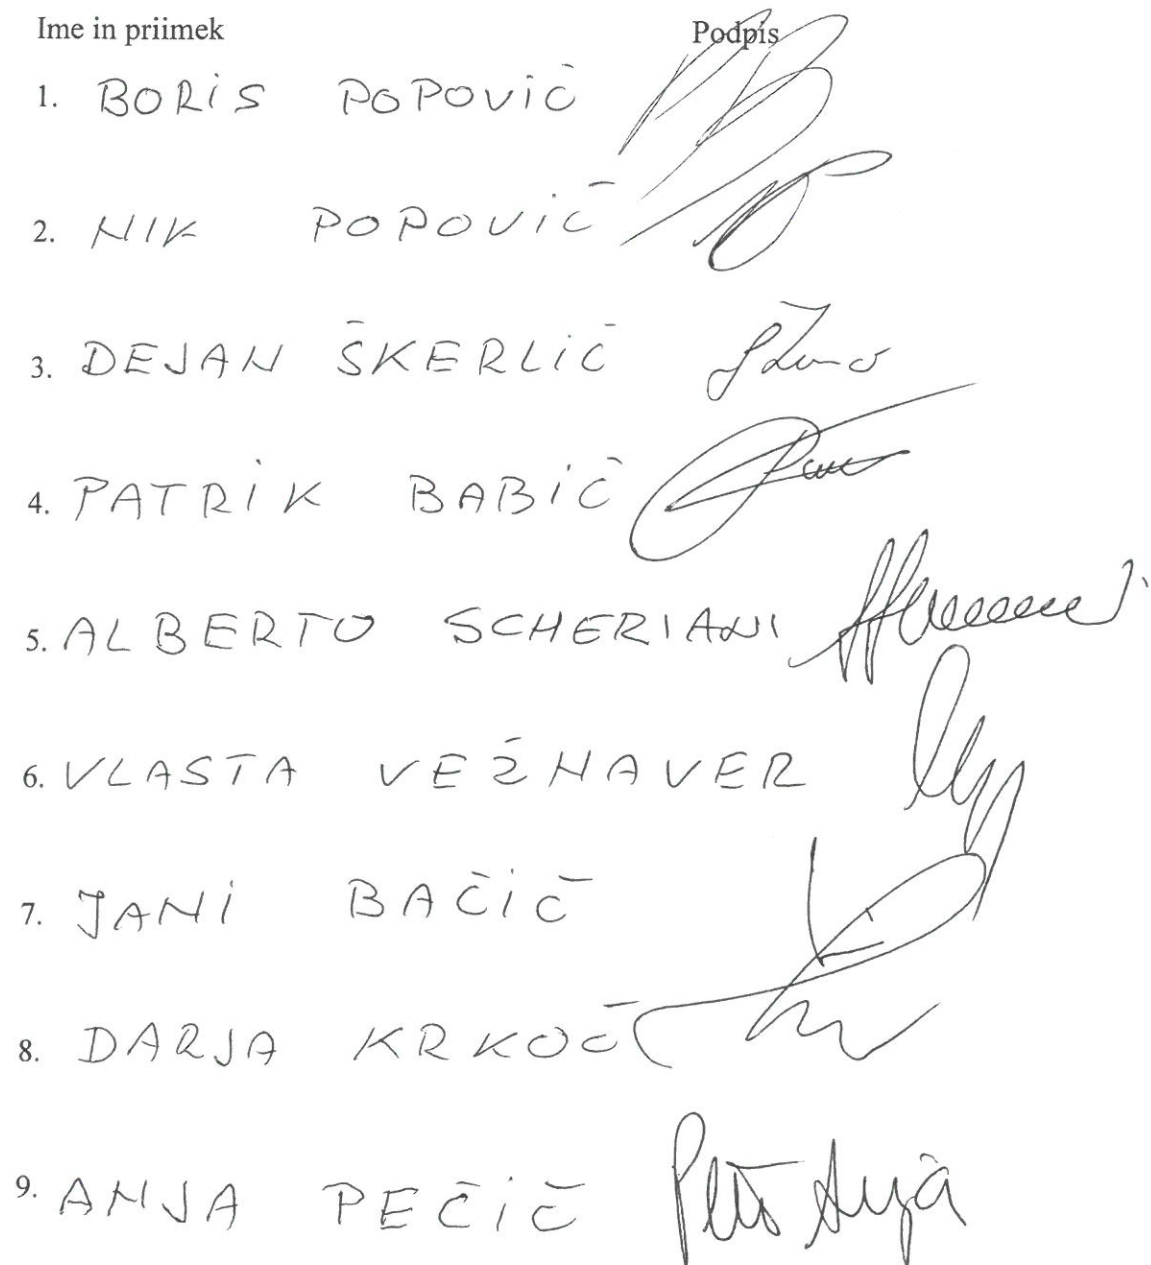 Ime in priimek Podpis
1. BORiS POPOViČ
2. NIK POPOViČ
3. DEJAN ŠKERLiČ
4. PATRiK BABiČ
5. ALBERTO SCHERIANI
6. VLASTA VEŽNAVER
7. JANi BAČiČ
8. DARJA KRKOČ
9. ANJA PEČiČ